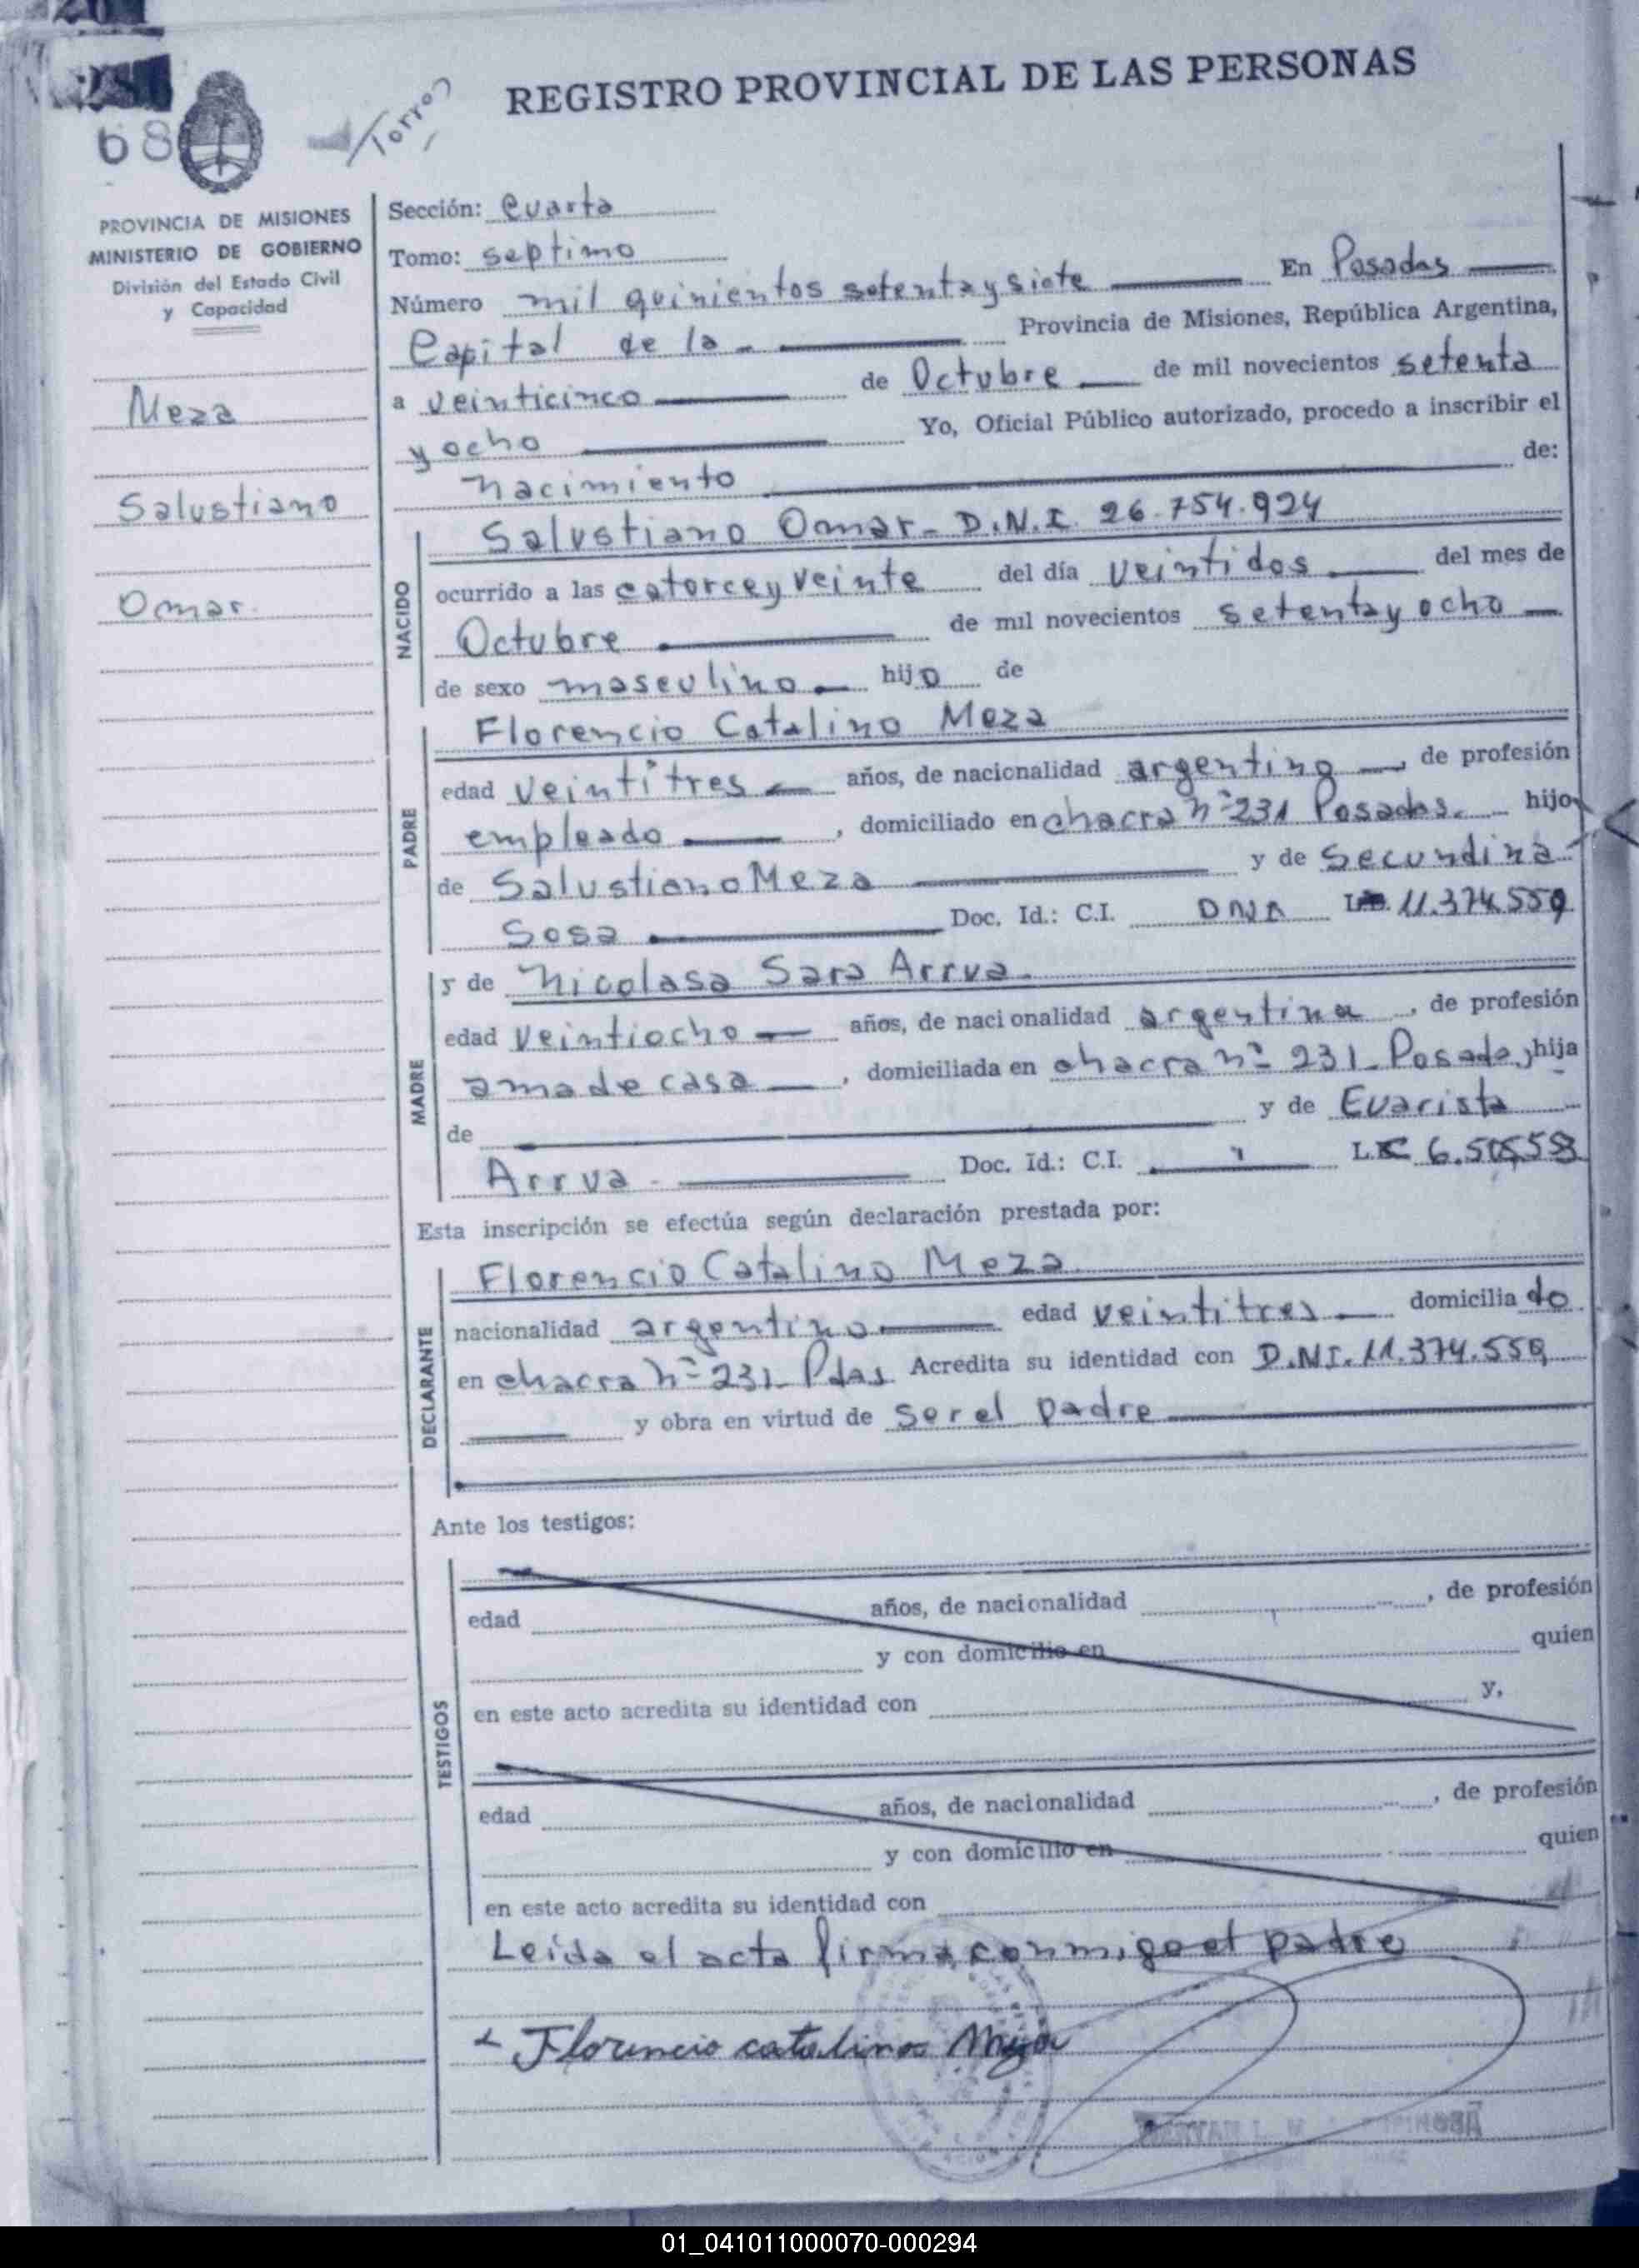 REGISTRO PROVINCIAL DE LAS PERSONAS
68
Torres
PROVINCIA DE MISIONES
MINISTERIO DE GOBIERNO
División del Estado Civil
y Capacidad
Meza
Salustiano
Omar
Sección: Cuarta
Tomo: septimo
Número mil quinientos setenta y siete En Posadas
Capital de la Provincia de Misiones, República Argentina,
a veinticinco de Octubre de mil novecientos setenta
y ocho Yo, Oficial Público autorizado, procedo a inscribir el
nacimiento de:
NACIDO
Salustiano Omar - D.N.I. 26.754.924
ocurrido a las catorce y veinte del día veintidos del mes de
Octubre de mil novecientos setenta y ocho
de sexo masculino hijo de
PADRE
Florencio Catalino Meza
edad veintitres años, de nacionalidad argentino, de profesión
empleado, domiciliado en chacra nº 231 Posadas. hijo
de Salustiano Meza y de Secundina
Sosa Doc. Id.: C.I. 11.374.559
MADRE
y de Nicolasa Sara Arrua.
edad veintiocho años, de nacionalidad argentina, de profesión
ama de casa, domiciliada en chacra nº 231 - Posadas, hija
de y de Evarista
Arrua - Doc. Id.: C.I. L.C
Esta inscripción se efectúa según declaración prestada por:
DECLARANTE
Florencio Catalino Meza.
nacionalidad argentino edad veintitres domiciliado
en chacra nº 231 - Pdas Acredita su identidad con D.N.I. 11.374.559
y obra en virtud de ser el padre
Ante los testigos:
TESTIGOS
edad años, de nacionalidad , de profesión
y con domicilio en quien
en este acto acredita su identidad con y,
edad años, de nacionalidad , de profesión
y con domicilio en quien
en este acto acredita su identidad con
Leida el acta firma conmigo el padre
Florencio catalino Meza
01_041011000070-000294